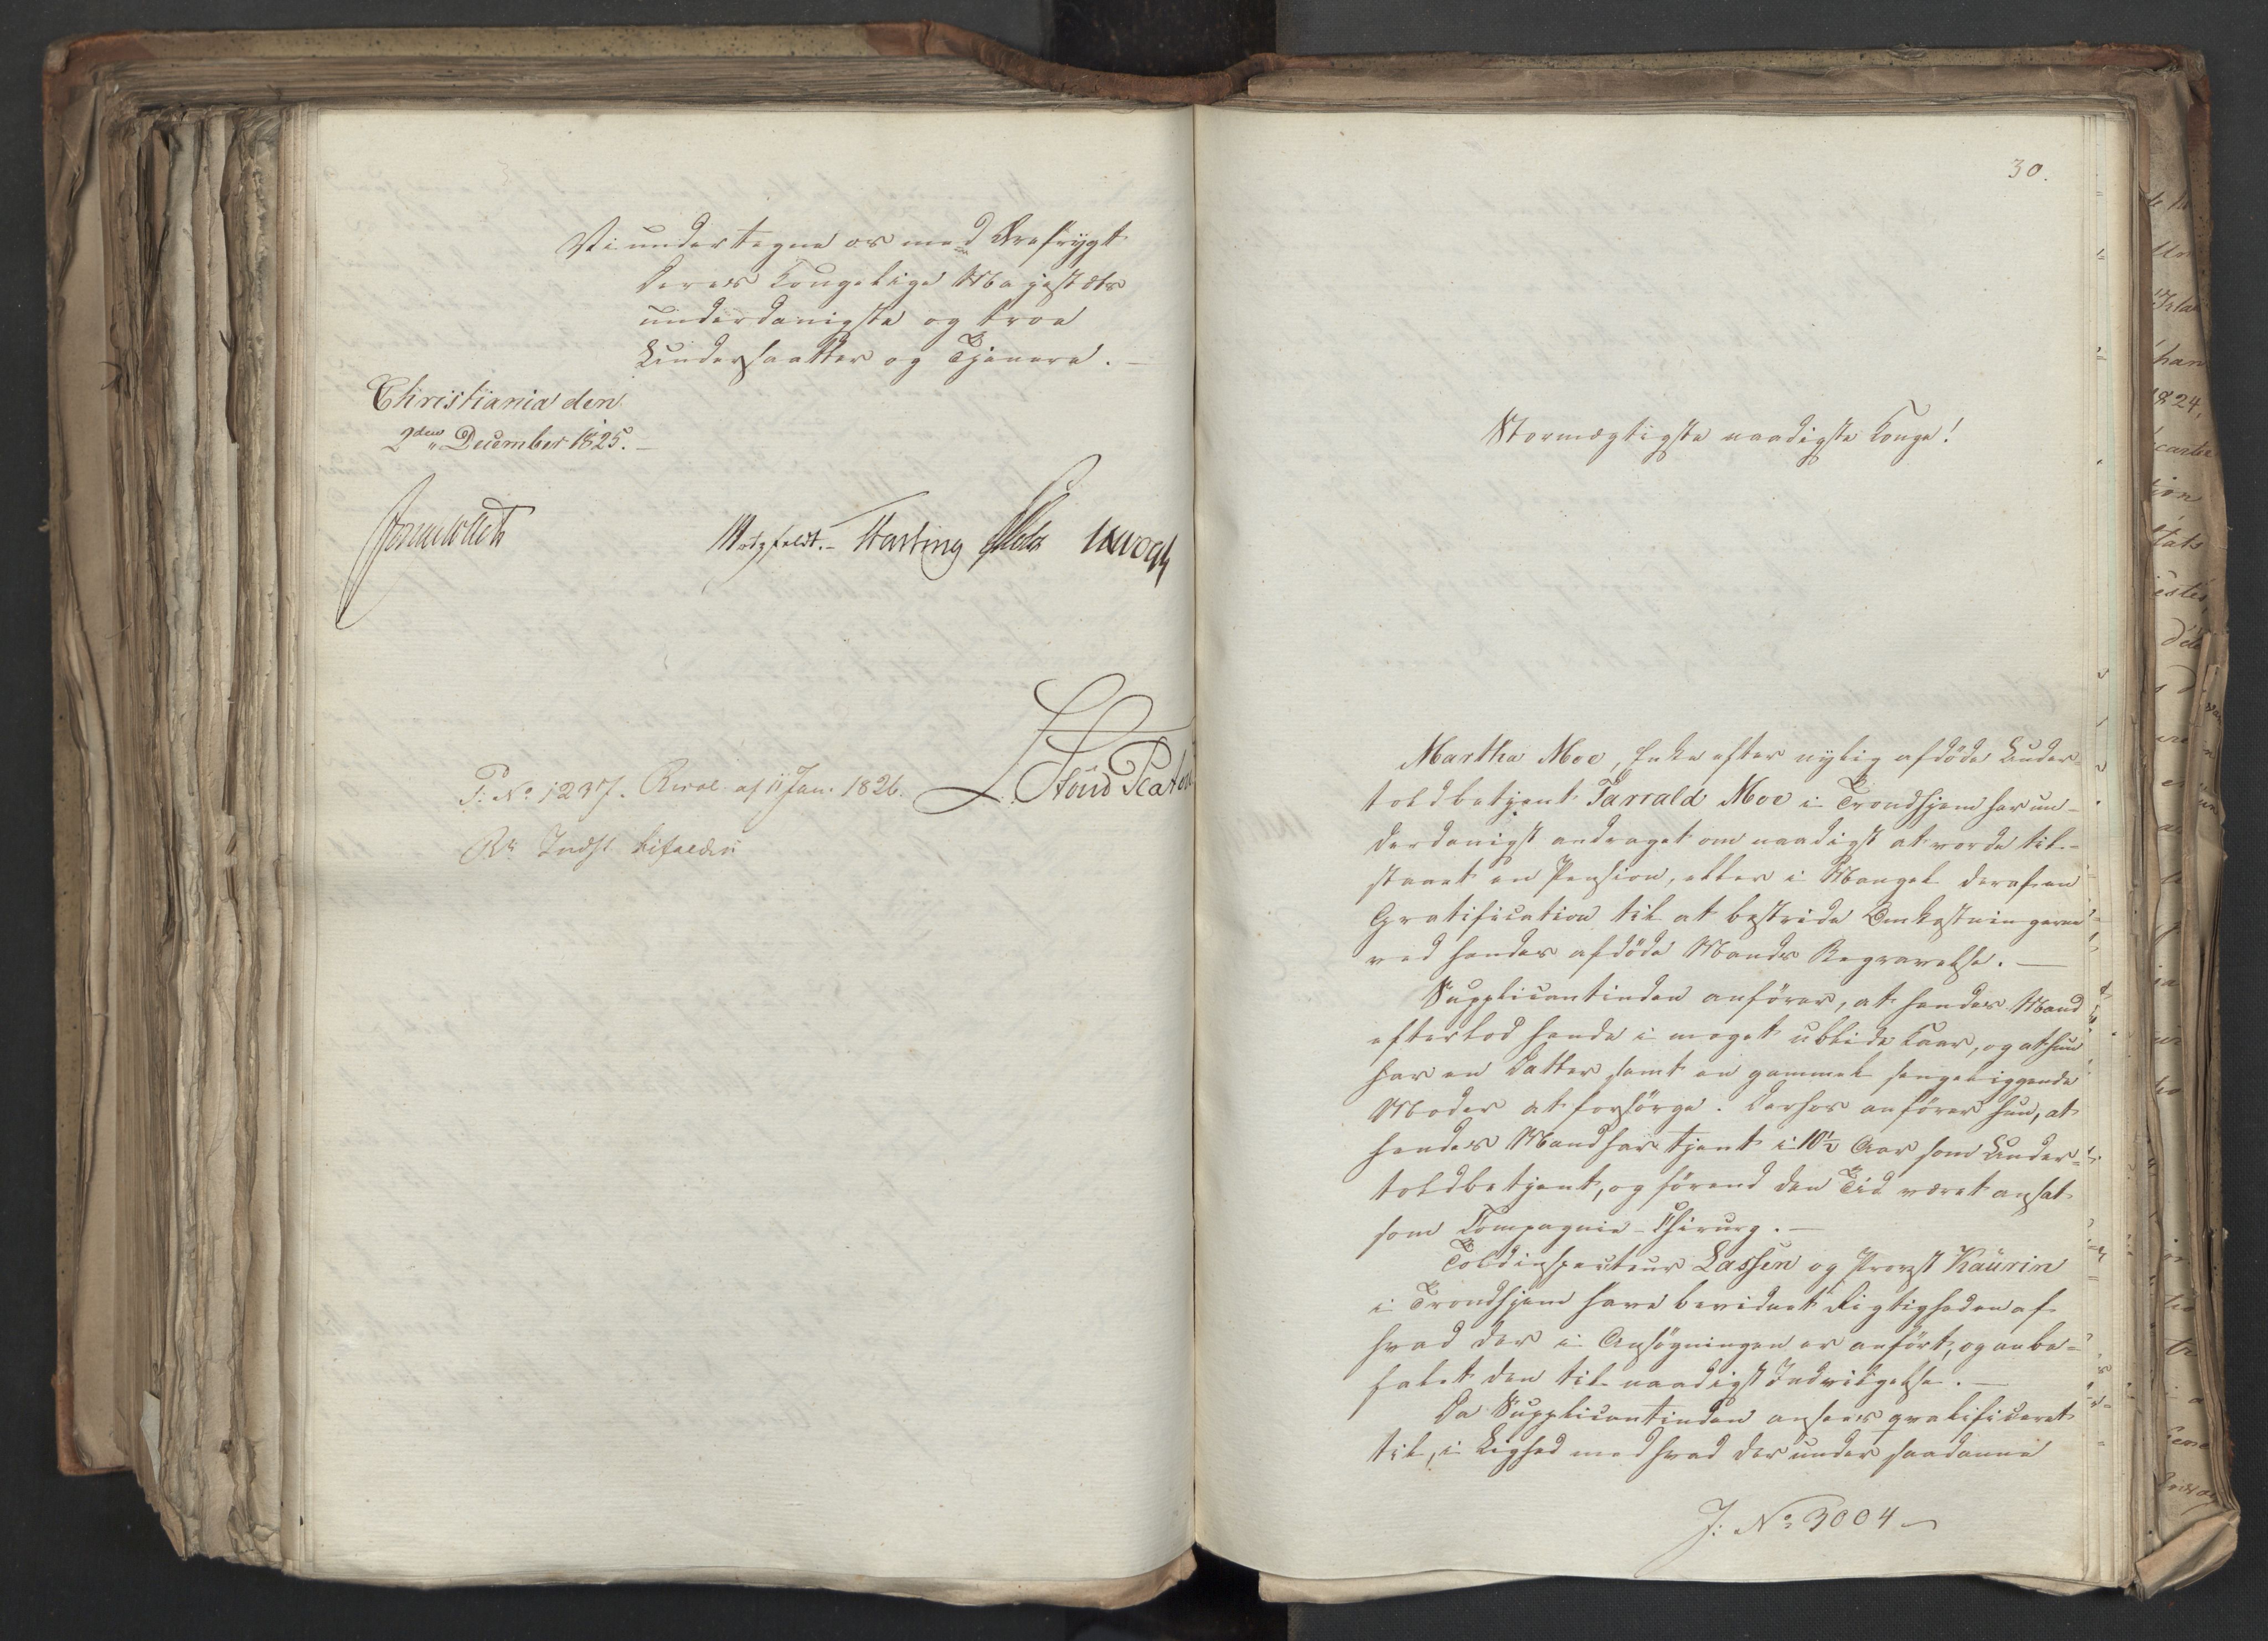 Vi undertegne os med Ærefrygt
Deres Kongelige Majestæts
underdanigste og troe
Undersaatter og Tjenere. —
Christiania den
2den December 1825. —
Sommerhielm
Motzfeldt. – Krebting
P: No 1237. Resol. af 11 Jan. 1826.
Rs Indst. bifaldes
30.
Stormægtigste naadigste Konge!
Martha Moe, Enke efter nylig afdöde Under-
toldbetjent Tarrald Moe i Trondhjem har un-
derdanigst andraget om naadigst at vorde til-
staaet en Pension, eller i Mangel deraf en
Gratification til at bestride Omkostningerne
ved hendes afdöde Mands Begravelse. —
Supplicantinden anförer, at hendes Mand
efterlod hende i meget ublide Kaar, og at hun
har en Datter samt en gammel sengeliggende
Moder at forsörge. Derhos anförer hun, at
hendes Mand har tjent i 10½ Aar som Under-
toldbetjent, og förend den Tid været ansat
som Compagnie-Chirurg. —
Toldinspecteur Lassen og Provst Kaurin
i Trondhjem have bevidnet Rigtigheden af
hvad der i Ansögningen er anfört, og anbe-
falet den til naadigst Indvilgelse. —
Da Supplicantinden ansees qvalificeret
til, i Lighed med hvad der under saadanne
J: No 3004